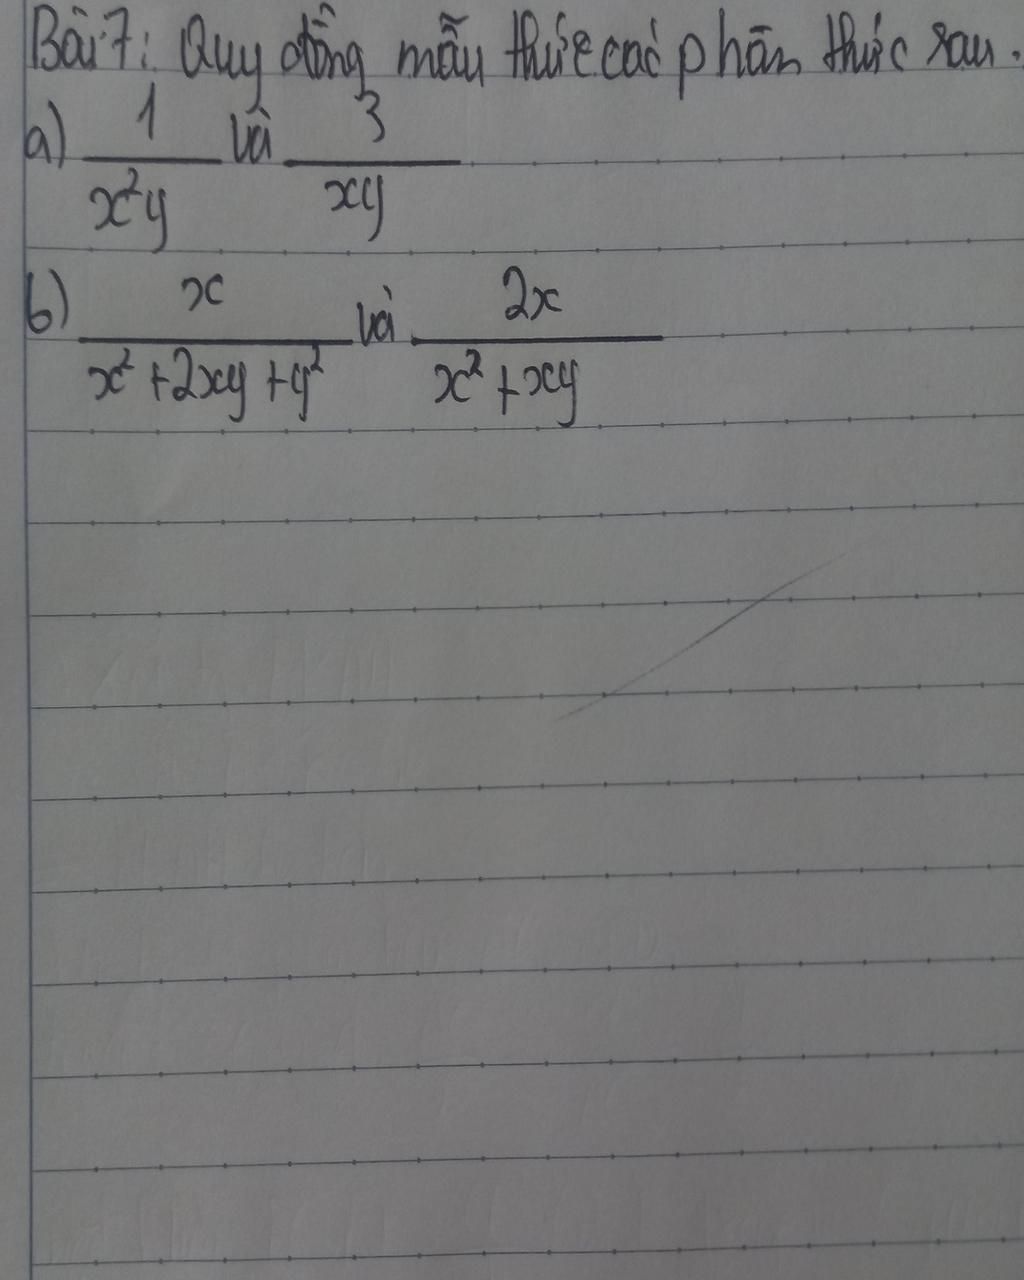 Bài 7: Quy đồng mẫu thức các phân thức sau.
a) 1/x²y và 3/xy
b) x/x² + 2xy + y² và 2x/x² + xy